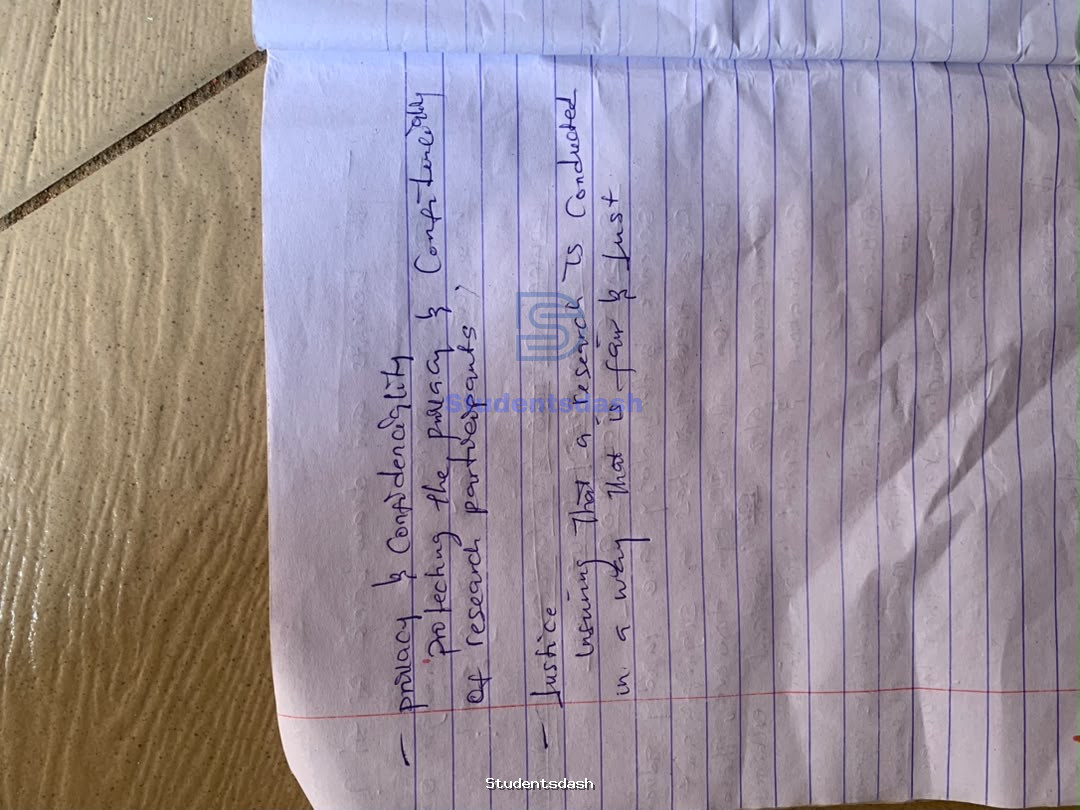 - privacy & Confidenciality
protecting the privacy & Confidenciality
of research participants,
- Justice
Insuring that a research is Conducted
in a way that is fair & Just
Studentsdash
Studentsdash